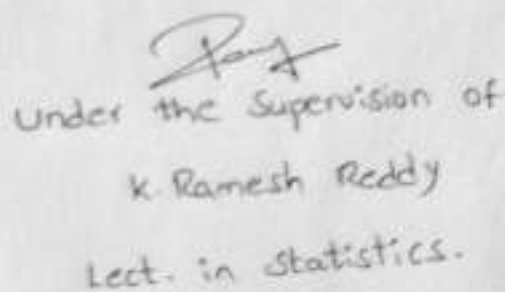 Under the Supervision of
K. Ramesh Reddy
Lect. in Statistics.